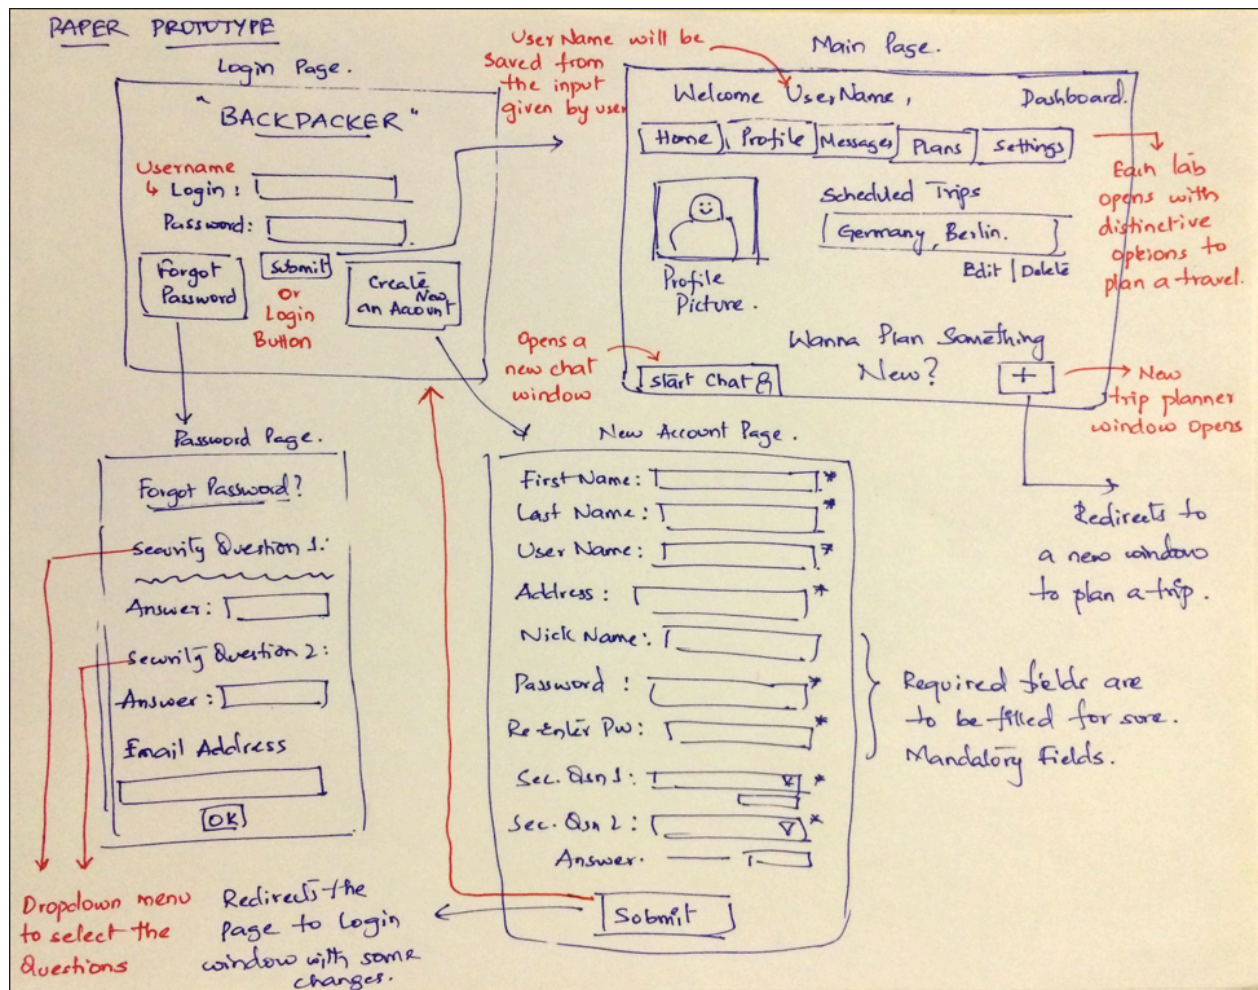 PAPER PROTOTYPE
Login Page.
"BACKPACKER"
Username
Login :
Password:
Forgot
Password
Submit
or
Login
Button
Create
New
an Account
User Name will be
saved from
the input
given by user
Main Page.
Welcome UserName, Dashboard.
Home Profile Messages Plans Settings
Each tab
opens with
distinctive
options to
plan a travel.
Profile
Picture.
Scheduled Trips
Germany, Berlin.
Edit | Delete
Opens a
new chat
window
Start Chat
Wanna Plan Something
New? +
New
trip planner
window opens
Redirects to
a new window
to plan a trip.
Password Page.
Forgot Password?
Security Question 1:
Answer:
Security Question 2:
Answer:
Email Address
OK
Dropdown menu
to select the
Questions
New Account Page.
First Name: *
Last Name: *
User Name: *
Address: *
Nick Name:
Password : *
Re-Enter Pw: *
Sec. Qsn 1: *
Sec. Qsn 2: *
Answer.
Submit
Required fields are
to be filled for sure.
Mandatory Fields.
Redirects the
page to Login
window with some
changes.